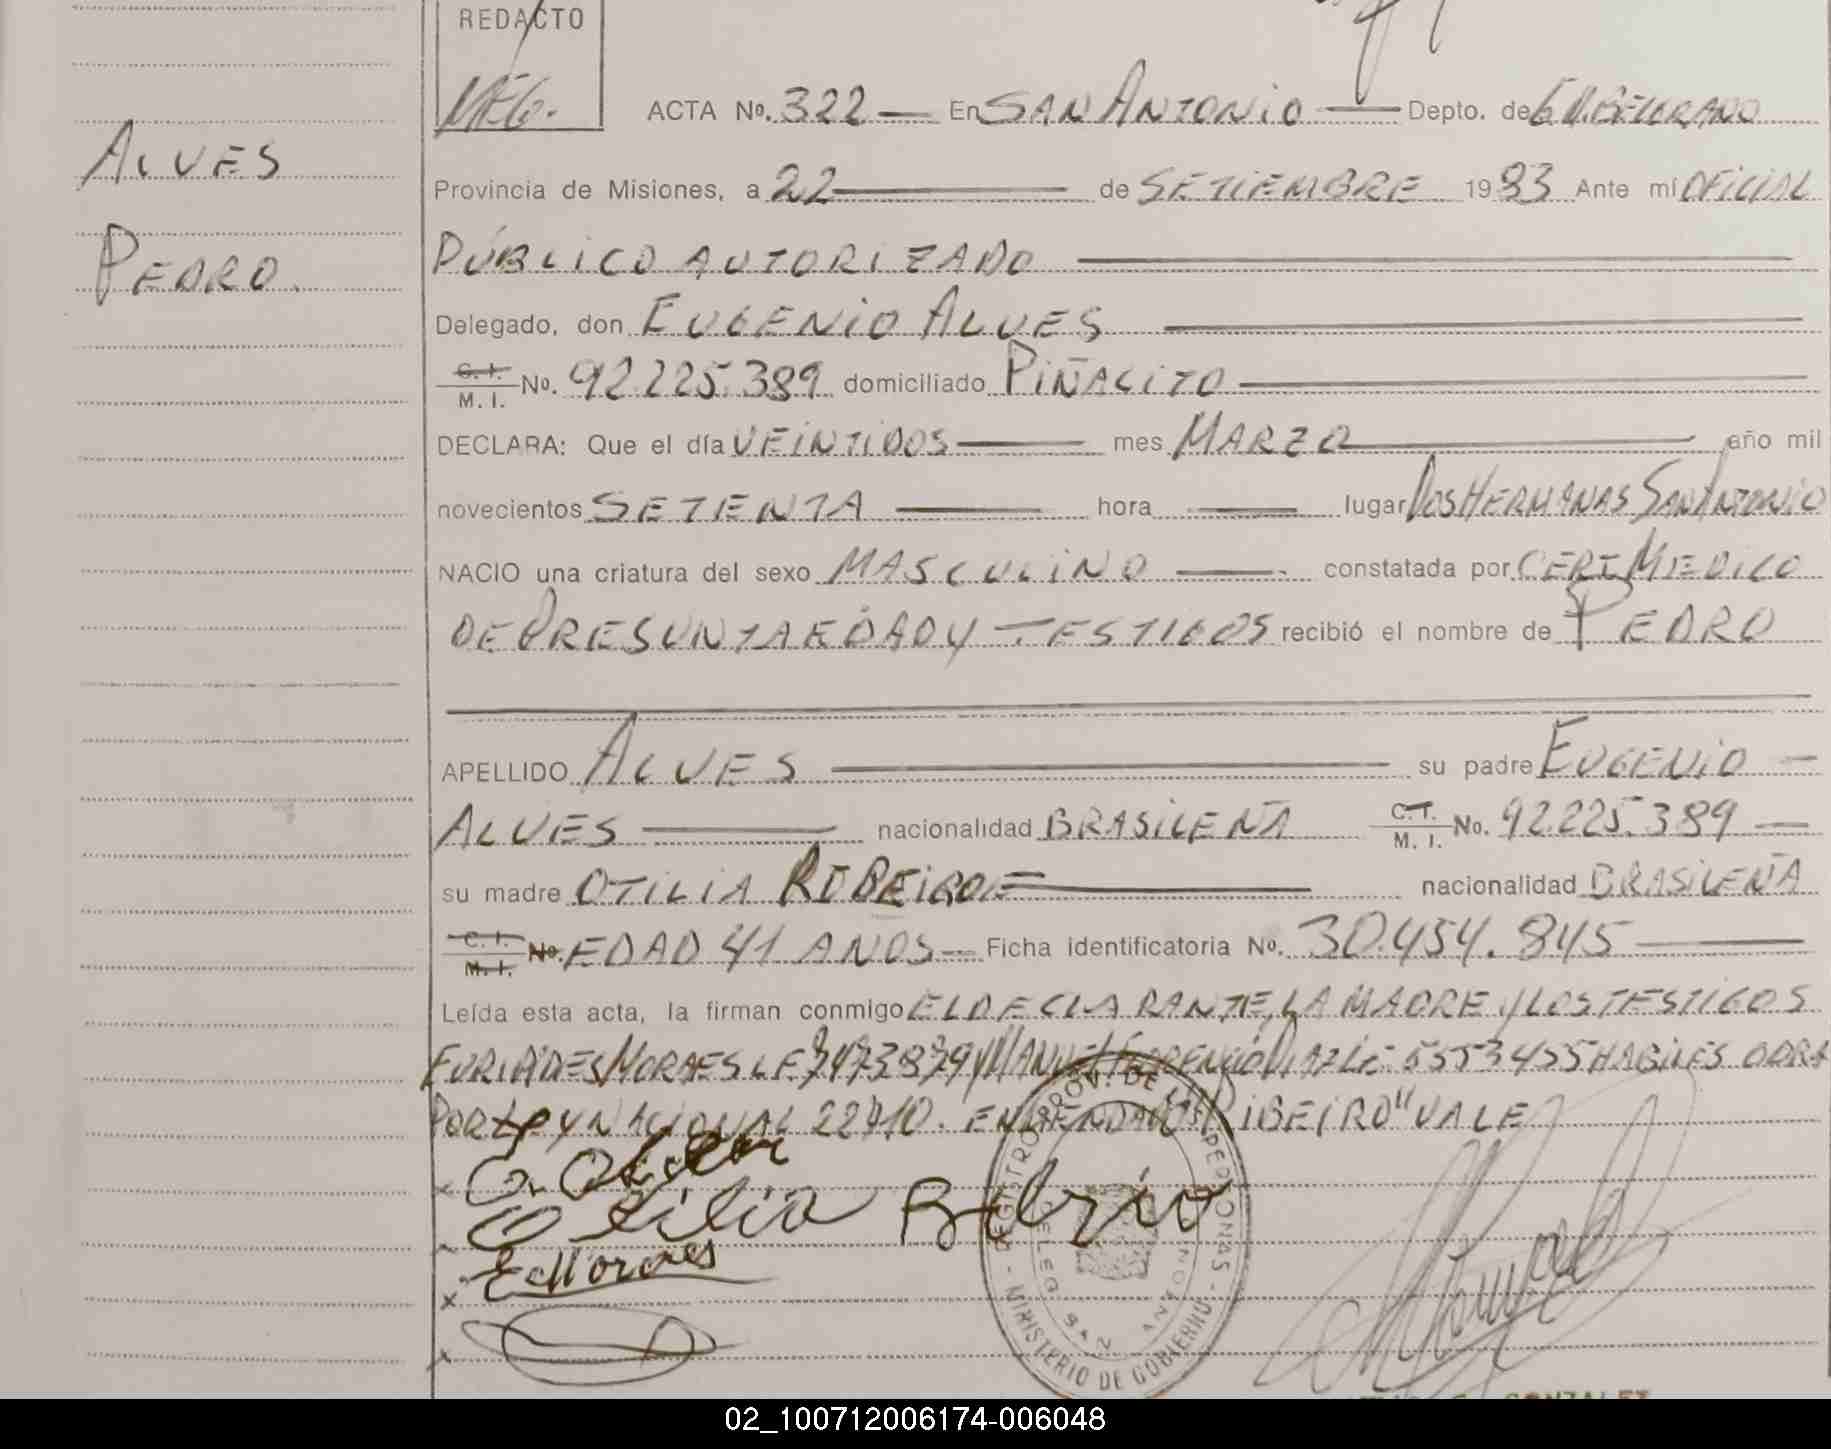 REDACTO
ALVES
PEDRO.
ACTA Nº. 322 — En SAN ANTONIO — Depto. de G M. BELGRANO
Provincia de Misiones, a 22 — de SETIEMBRE 1983 Ante mí OFICIAL
PÚBLICO AUTORIZADO
Delegado, don EUGENIO ALVES
C. I. M. I. Nº. 92.225.389 domiciliado PIÑALITO
DECLARA: Que el día VEINTIDOS — mes MARZO — año mil
novecientos SETENTA — hora — lugar DOS HERMANAS SAN ANTONIO
NACIO una criatura del sexo MASCULINO — constatada por CERT MEDICO
DE PRESUNTA EDAD Y TESTIGOS recibió el nombre de PEDRO
APELLIDO ALVES — su padre EUGENIO —
ALVES — nacionalidad BRASILEÑA C. I. M. I. Nº. 92.225.389 —
su madre OTILIA RIBEIRO = nacionalidad BRASILEÑA
C. I. M. I. Nº. EDAD 41 AÑOS — Ficha identificatoria Nº. 30.454.845 —
Leída esta acta, la firman conmigo EL DECLARANTE, LA MADRE Y LOS TESTIGOS
MORAES LE 7473879 Y MANUEL FLORENCIO DIAZ LE 5553455 HABILES OBRA
POR LEY NACIONAL 22410. ENMENDADO "RIBEIRO" VALE
Otilia
E Moraes
REGISTRO PROV. DE LAS PERSONAS - MINISTERIO DE GOBIERNO -
DELEG. SAN ANTONIO
GONZALEZ
02_100712006174-006048